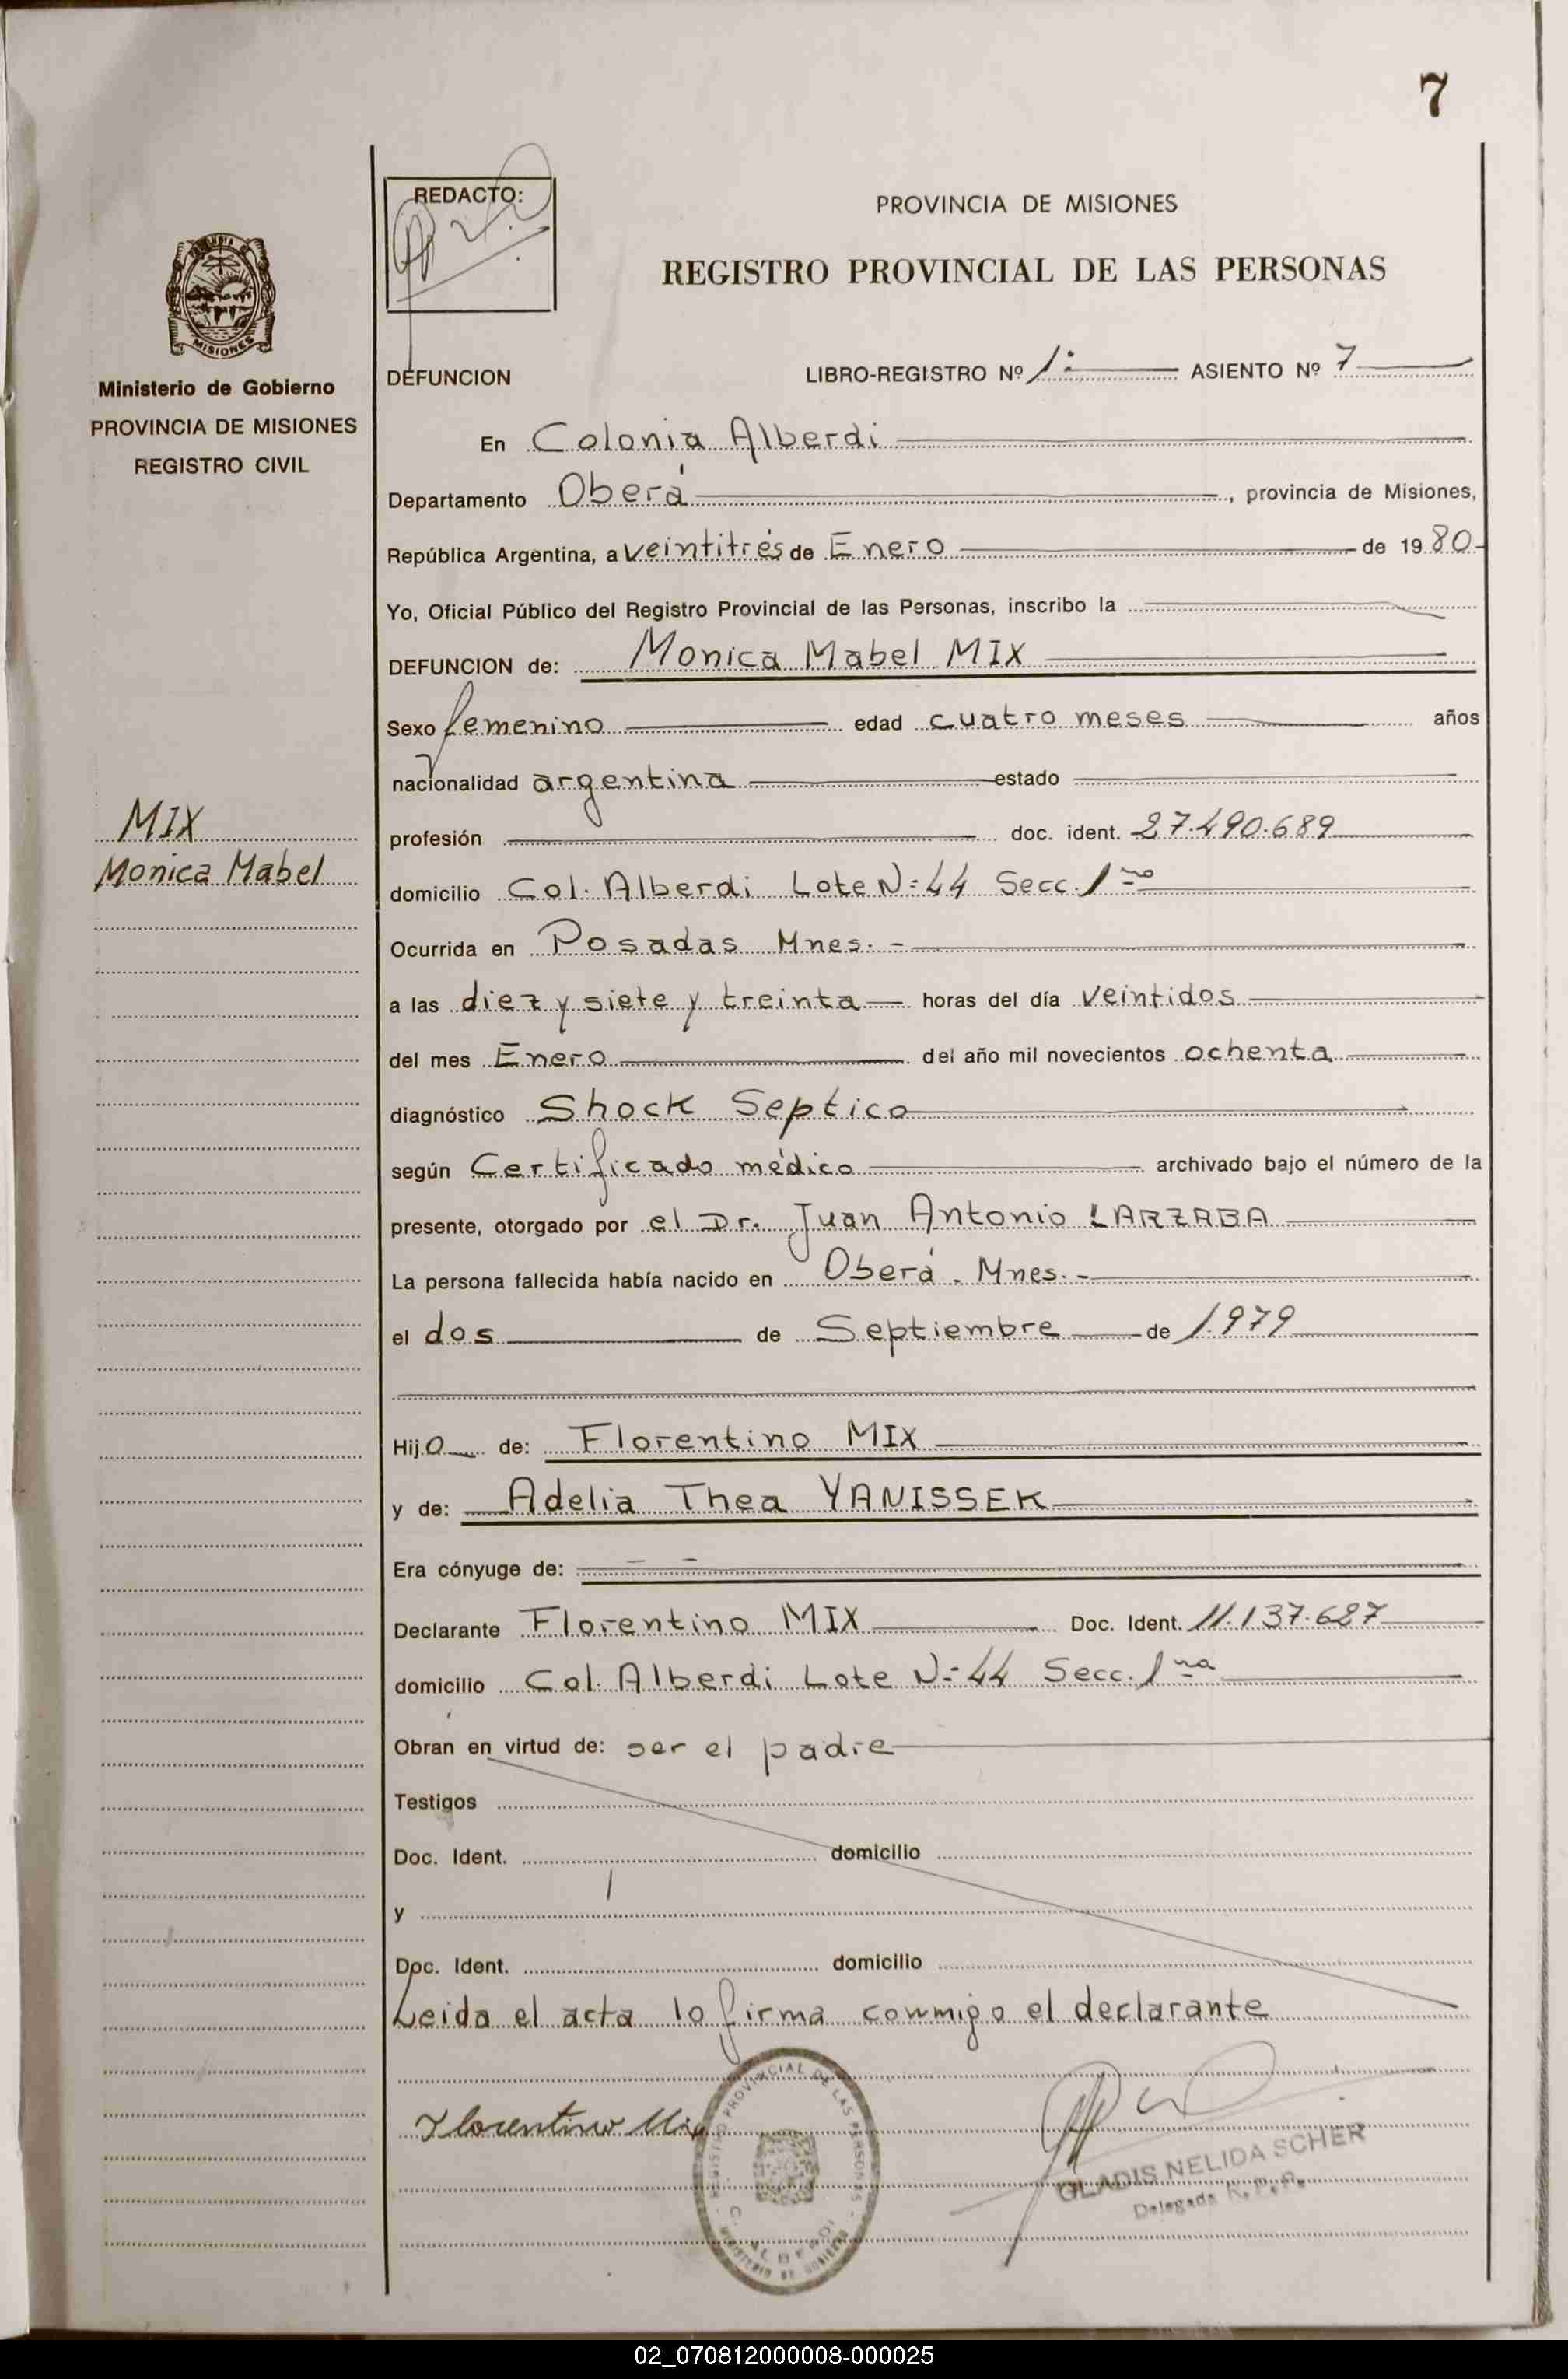 7
REDACTO:
PROVINCIA DE MISIONES
REGISTRO PROVINCIAL DE LAS PERSONAS
MISIONES
Ministerio de Gobierno
PROVINCIA DE MISIONES
REGISTRO CIVIL
DEFUNCION LIBRO-REGISTRO Nº 1º ASIENTO Nº 7
En Colonia Alberdi
Departamento Oberá, provincia de Misiones,
República Argentina, a veintitrés de Enero de 1980
Yo, Oficial Público del Registro Provincial de las Personas, inscribo la
DEFUNCION de: Monica Mabel MIX
Sexo femenino edad cuatro meses años
nacionalidad argentina estado
MIX
Monica Mabel
profesión doc. ident. 27.490.689
domicilio Col. Alberdi Lote Nº 44 Secc. 1ra
Ocurrida en Posadas Mnes. -
a las diez y siete y treinta horas del día veintidos
del mes Enero del año mil novecientos ochenta
diagnóstico Shock Septico
según Certificado médico archivado bajo el número de la
presente, otorgado por el Dr. Juan Antonio LARZABA
La persona fallecida había nacido en Oberá - Mnes. -
el dos de Septiembre de 1979
Hijo de: Florentino MIX
y de: Adelia Thea YANISSEK
Era cónyuge de:
Declarante Florentino MIX Doc. Ident. 11.137.627
domicilio Col. Alberdi Lote Nº 44 Secc. 1na
Obran en virtud de: ser el padre
Testigos
Doc. Ident. domicilio
y
Doc. Ident. domicilio
Leida el acta lo firma conmigo el declarante
Florentino Mix
REGISTRO PROVINCIAL DE LAS PERSONAS
C. ALBERDI
MINISTERIO DE GOBIERNO
GLADIS NELIDA SCHER
Delegada R. P. P.
02_070812000008-000025